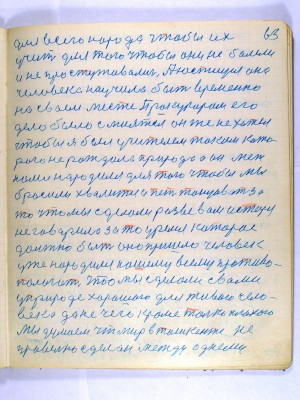 63
для всего народа чтобы их
учит для того чтобы они не болели
и не простуживались, А юстиция она
человека научила быть временно
на своем месте Прокурором его
дело было смеятся он же не хотел
чтобы я был учителем таким кото
рого не рождала природа а он мет
нами народила для того чтобы мы
бросили хвалится и пет танцоват за
то что мы сделали разве вам историк
не говорил за то время которое
должно быт оно пришло человек
уже народился нашему всему противо
положност, Что мы сделали с вами
в природе хорошого для живого чело-
века да не чего кроме только плохого
Мы думаем что мир в ташкенте не
правелно сделан между одними